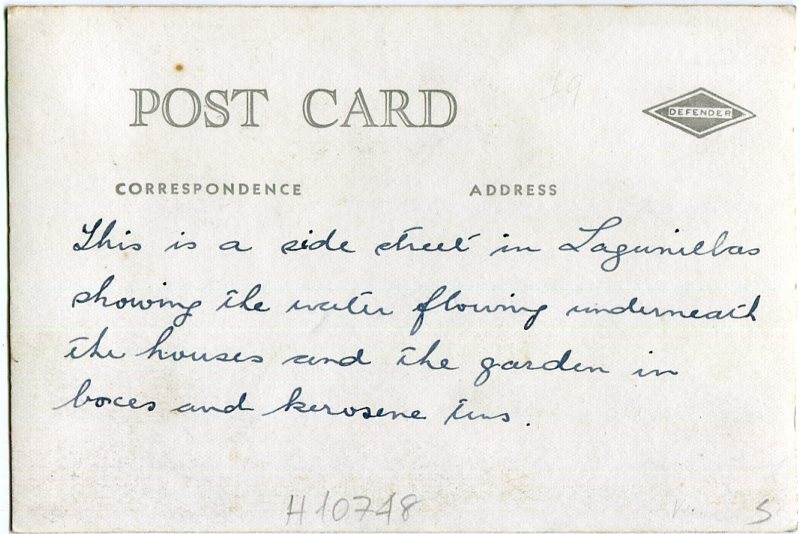 POST CARD
DEFENDER
CORRESPONDENCE ADDRESS
This is a side street in Lagunillas
showing the water flowing underneath
the houses and the garden in
boxes and kerosene tins.
H10748
S